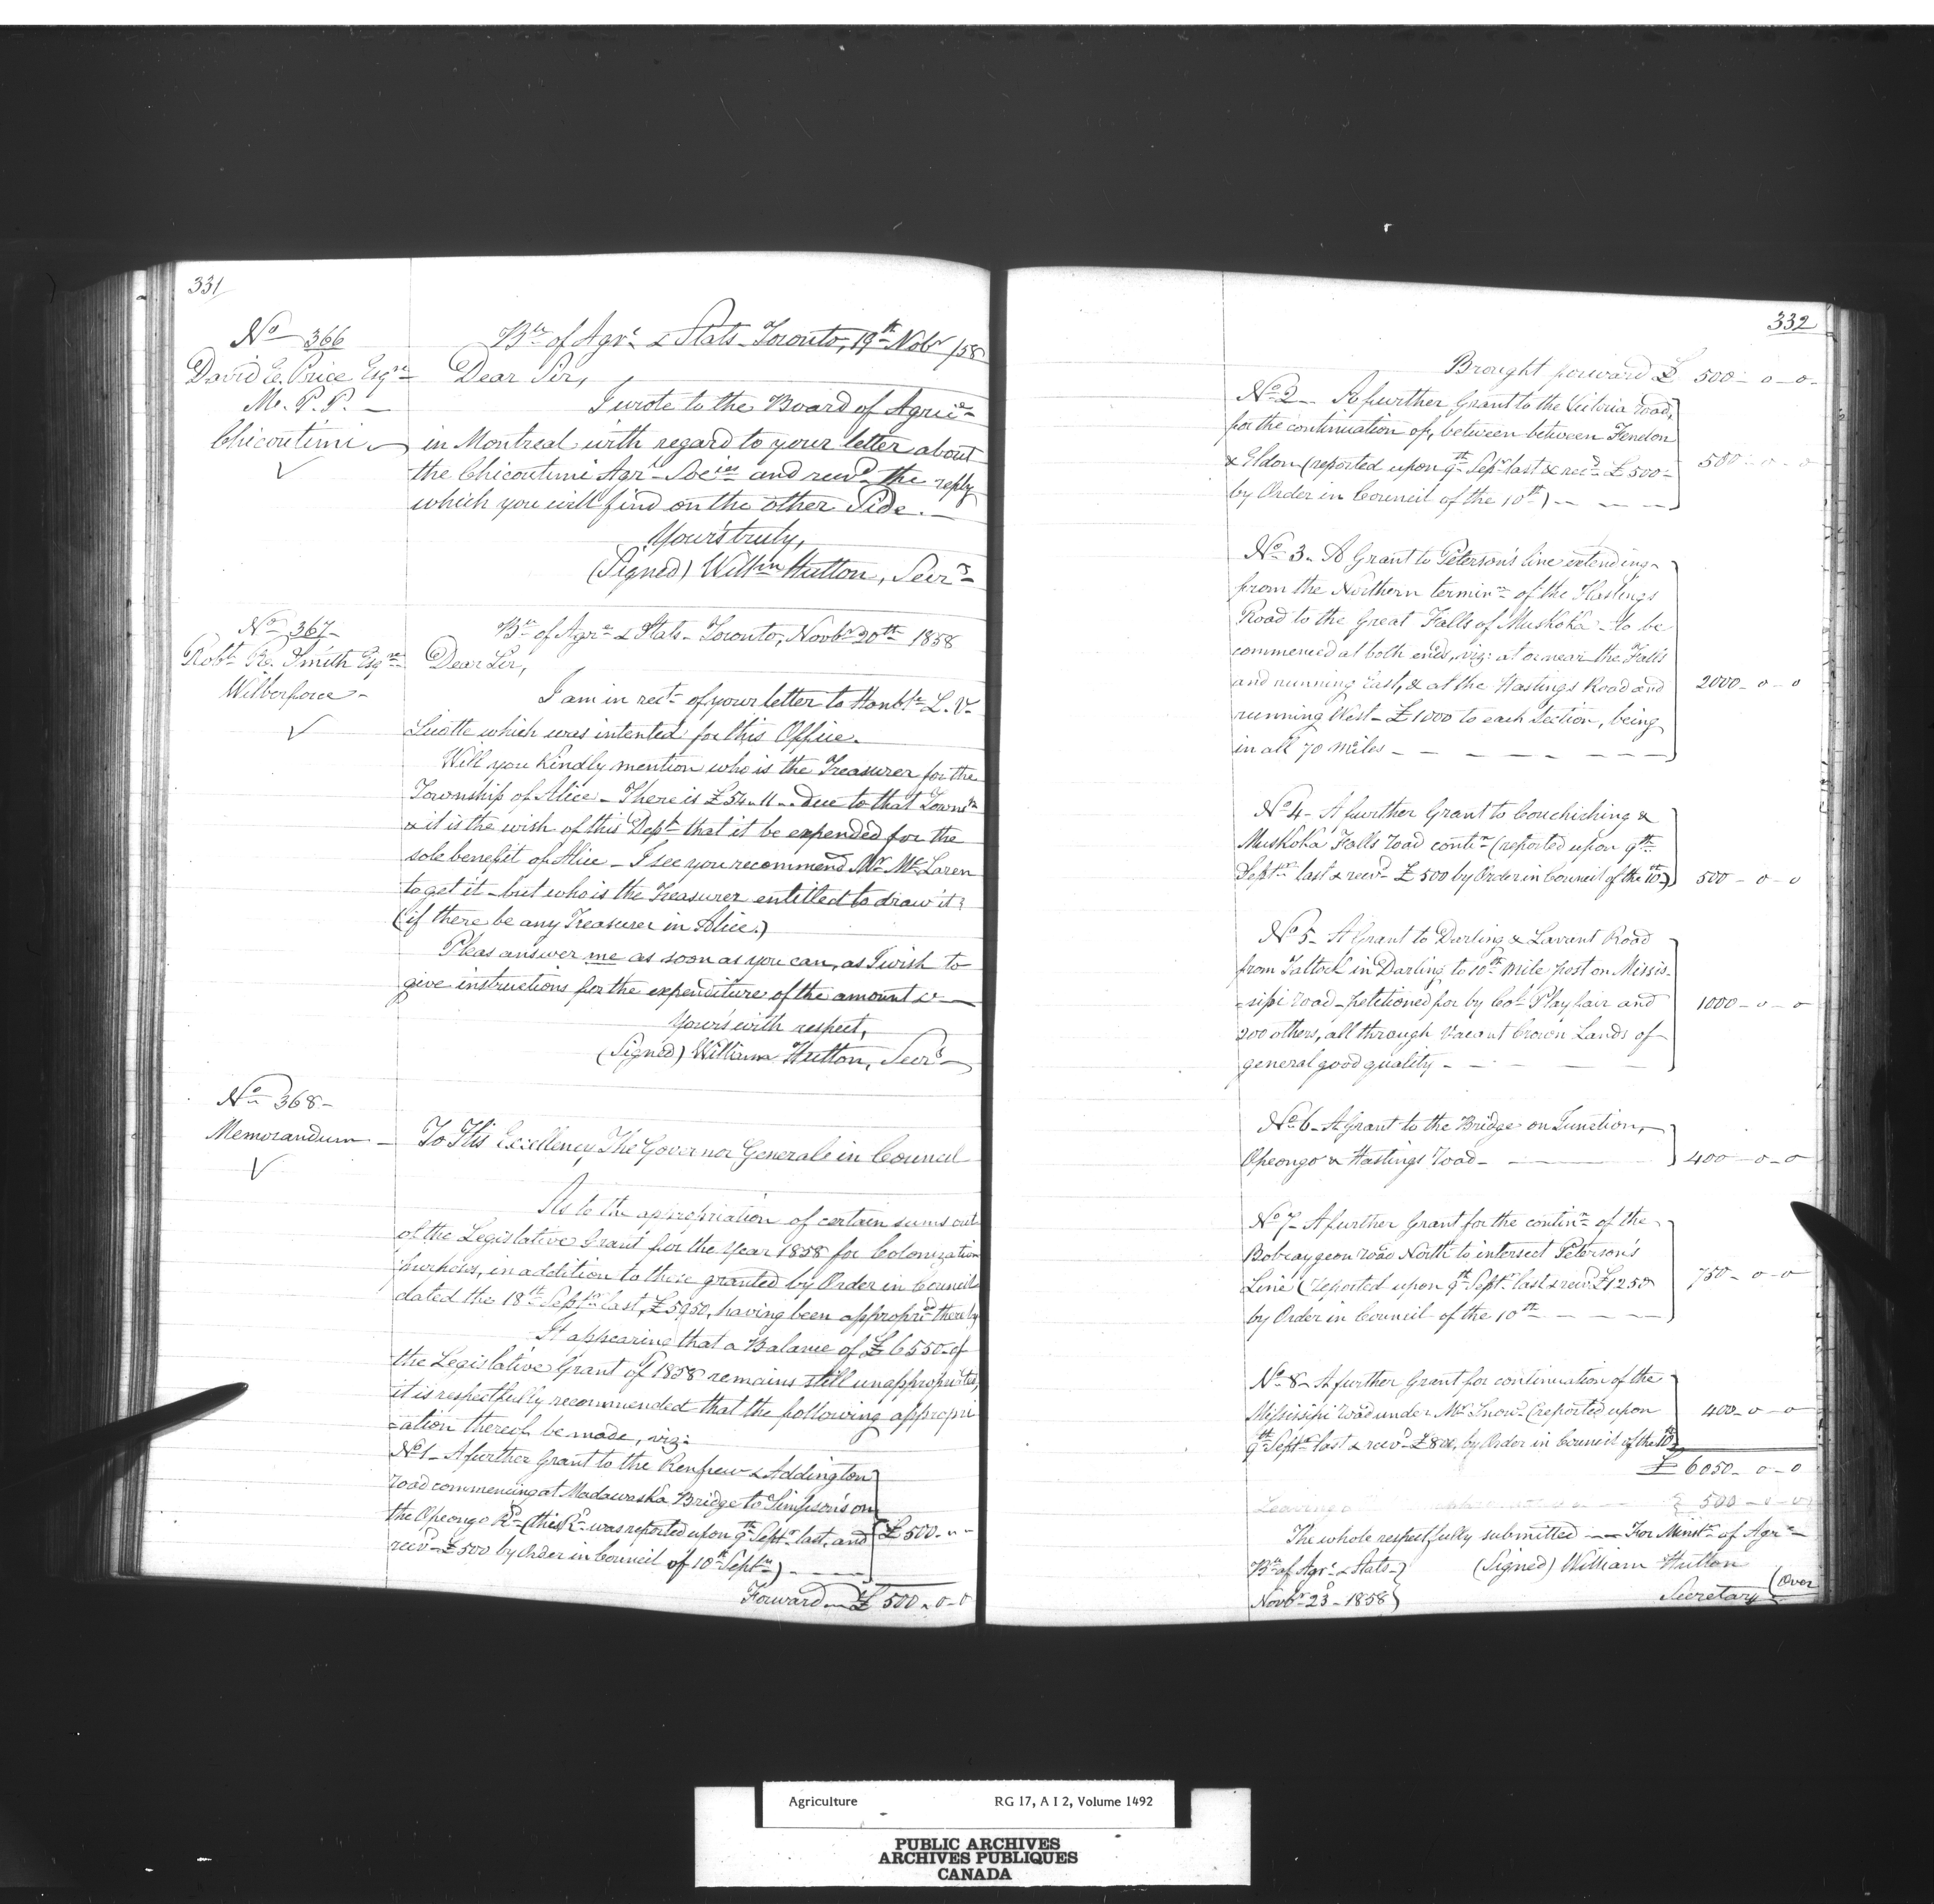 331
No 366
David E. Price Esqre
M. P. P. —
Chicoutimi
Bu of Agre & Stats - Toronto, 19th Novr /58
Dear Sir,
I wrote to the Board of Agricre
in Montreal with regard to your letter about
the Chicoutimi Agrl Socies and recd the reply
which you will find on the other Side. —
Your's truly,
(Signed) Willm Hutton, Secry
No 367 -
Robt R. Smith Esqre
Wilberforce -
Bu of Agre & Stats - Toronto, Novbr 20th 1858
Dear Sir,
I am in rect of your letter to Honble L. V.
Sicotte which was intented for this Office.
Will you kindly mention who is the Treasurer for the
Township of Alice - There is £54-11- due to that Townsp
& it is the wish of this Dept that it be expended for the
sole benefit of Alice - I see you recommend Mr McLaren
to get it - but who is the Treasurer entitled to draw it?
(if there be any Treasurer in Alice.)
Pleas answer me as soon as you can, as I wish to
give instructions for the expenditure of the amount &c —
Your's with respect,
(Signed) William Hutton, Secry
No 368 -
Memorandum -
To His Excellency, The Governor General in Council
As to the appropriation of certain sums out
of the Legislative Grant for the Year 1858 for Colonization
purposes, in addition to those granted by Order in Council
dated the 18th Septr last, £5950, having been appropred thereby
It appearing that a Balance of £6550 - of
the Legislative Grant of 1858 remains still unappropriated,
it is respectfully recommended that the following appropri
-ation thereof be made, viz:
No 1 - A further Grant to the Renfrew & Addington
road commencing at Madawaska Bridge to Simpson's on
the Opeongo Rd - (this Rd was reported upon 9th Septr last, and
£500 - -
recd £500 by Order in Council of 10th Septr) - - - -
Forward — £500 - 0 - 0
332
Brought forward £ 500 - 0 - 0 -
No 2 - A further Grant to the Victoria road,
for the continuation of, between between Fenelon
& Eldon (reported upon 9th Septr last & recd £500 -
500 - 0 - 0
by Order in Council of the 10th) - - - -
No 3 - A Grant to Peterson's line extending
from the Northern terminn of the Hastings
Road to the Great Falls of Muskoka - to be
commenced at both ends, viz: at or near the Falls
and running East, & at the Hastings Road and
2000 - 0 - 0
running West - £1000 to each Section, being
in all 70 miles - - - - - -
No 4 - A further Grant to Couchiching &
Muskoka Falls road contin (reported upon 9th
Septr last & recd £500 by Order in Council of the 10th)
500 - 0 - 0
No 5 - A Grant to Darling & Lavant Road
from Tattock in Darling to 10th mile post on Missis-
-sipi road - petitioned for by Col Playfair and
1000 - 0 - 0
200 others, all through Vacant Crown Lands of
general good quality - - - -
No 6 - A Grant to the Bridge on Junction,
Opeongo & Hastings road - —
400 - 0 - 0
No 7 - A further Grant for the continn of the
Bobcaygeon road North to intersect Peterson's
Line (reported upon 9th Septr last & recd £1250
750 - 0 - 0
by Order in Council of the 10th - - - -
No 8 - A further Grant for continuation of the
Mississipi road under Mr Snow - (reported upon
400 - 0 - 0
9th Septr last & recd £800, by Order in Council of the 10th)
£ 6050 - 0 - 0
Leaving a
£ 500 - 0 - 0
The whole respectfully submitted — For Minstr of Agre
Bu of Agre & Stats -
(Signed) William Hutton
Novbr 23 - 1858
Secretary
(Over
Agriculture
RG 17, A I 2, Volume 1492
PUBLIC ARCHIVES
ARCHIVES PUBLIQUES
CANADA